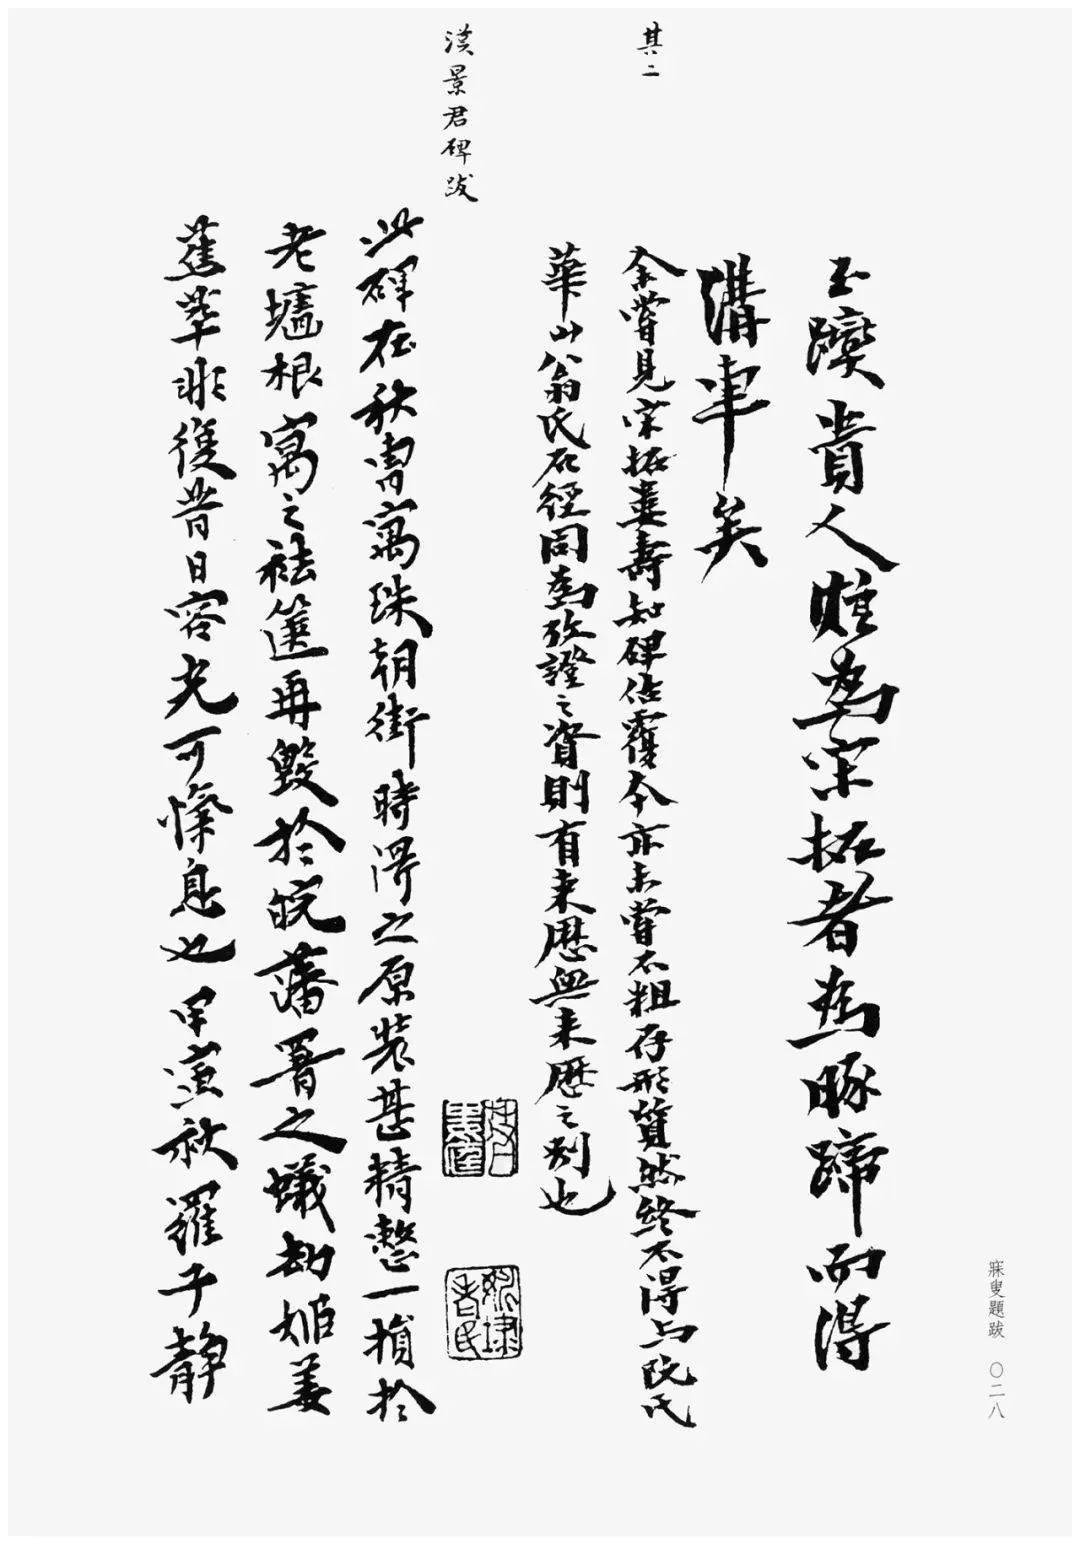 玉躞貴人賍為宋拓者為豚蹄而得
溝車矣
其二
余嘗見宋拓婁壽知碑估覆本亦未嘗不粗存形質然終不得与阮氏
華山翁氏石經同為攷證之資則有来歷無来歷之别也
漢景君碑跋
此碑在秋曹寓珠朝街時得之原裝甚精整一損於
老墻根寓之祛篋再毀於皖藩署之蟻劫姬姜
蕉萃非復昔日容光可慘息也甲寅秋羅子靜
寐叟題跋 〇二八